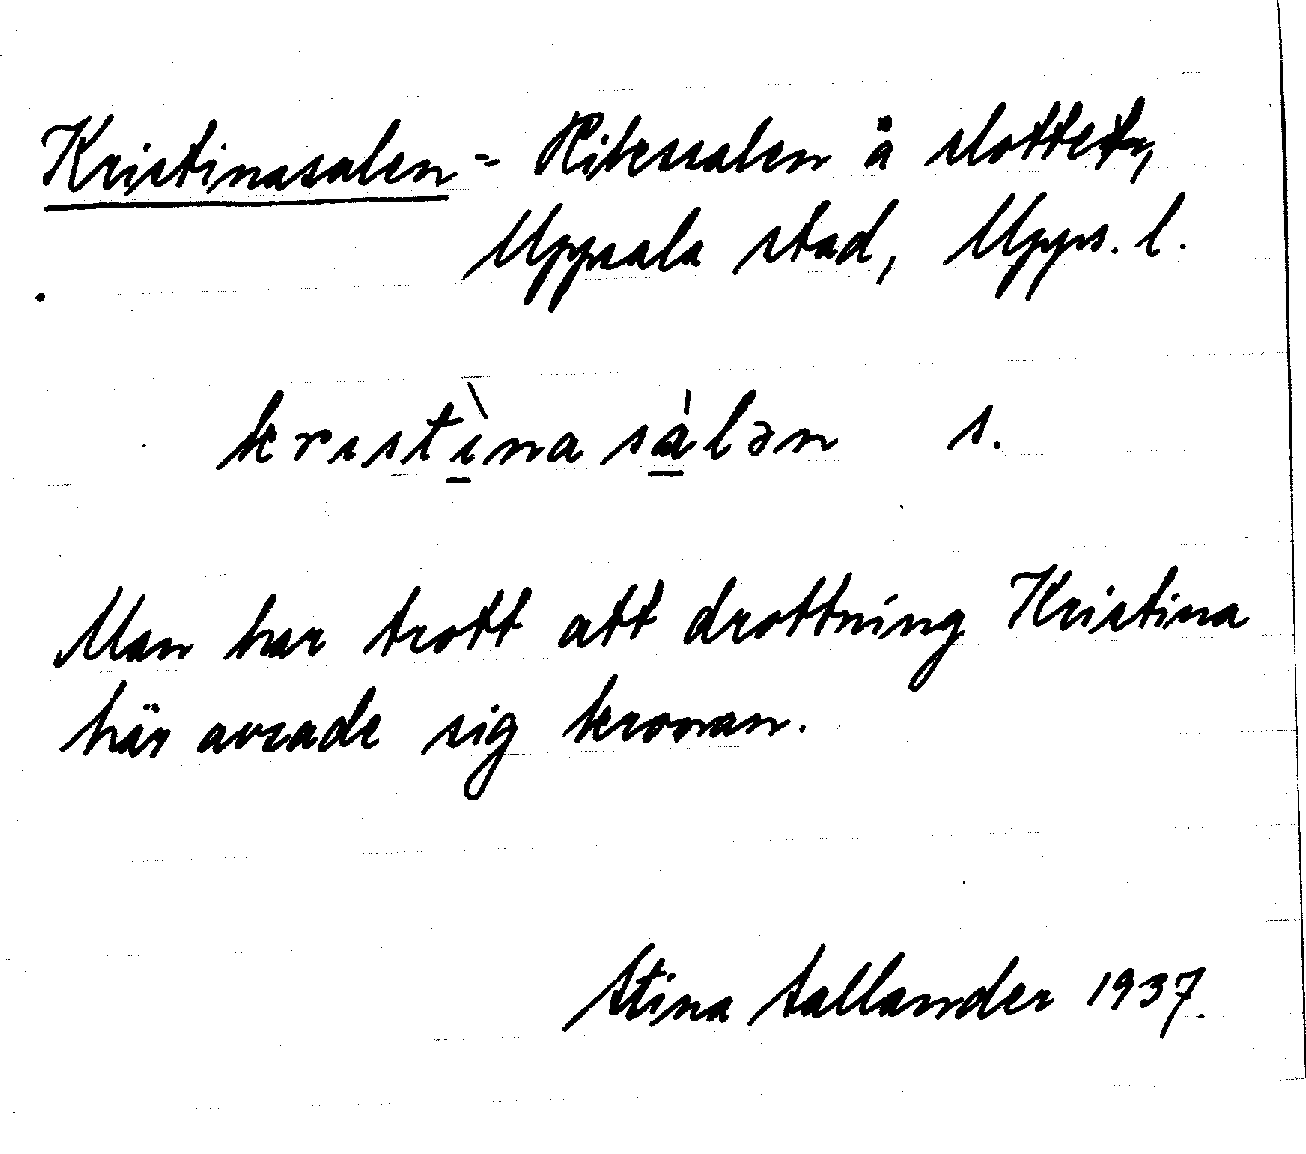 Kristinasalen = Rikssalen å slottet,
Uppsala stad, Upps. l.
krɪstìna sàlən s.
Man har trott att drottning Kristina
här avsade sig kronan.
Stina Sallander 1937.